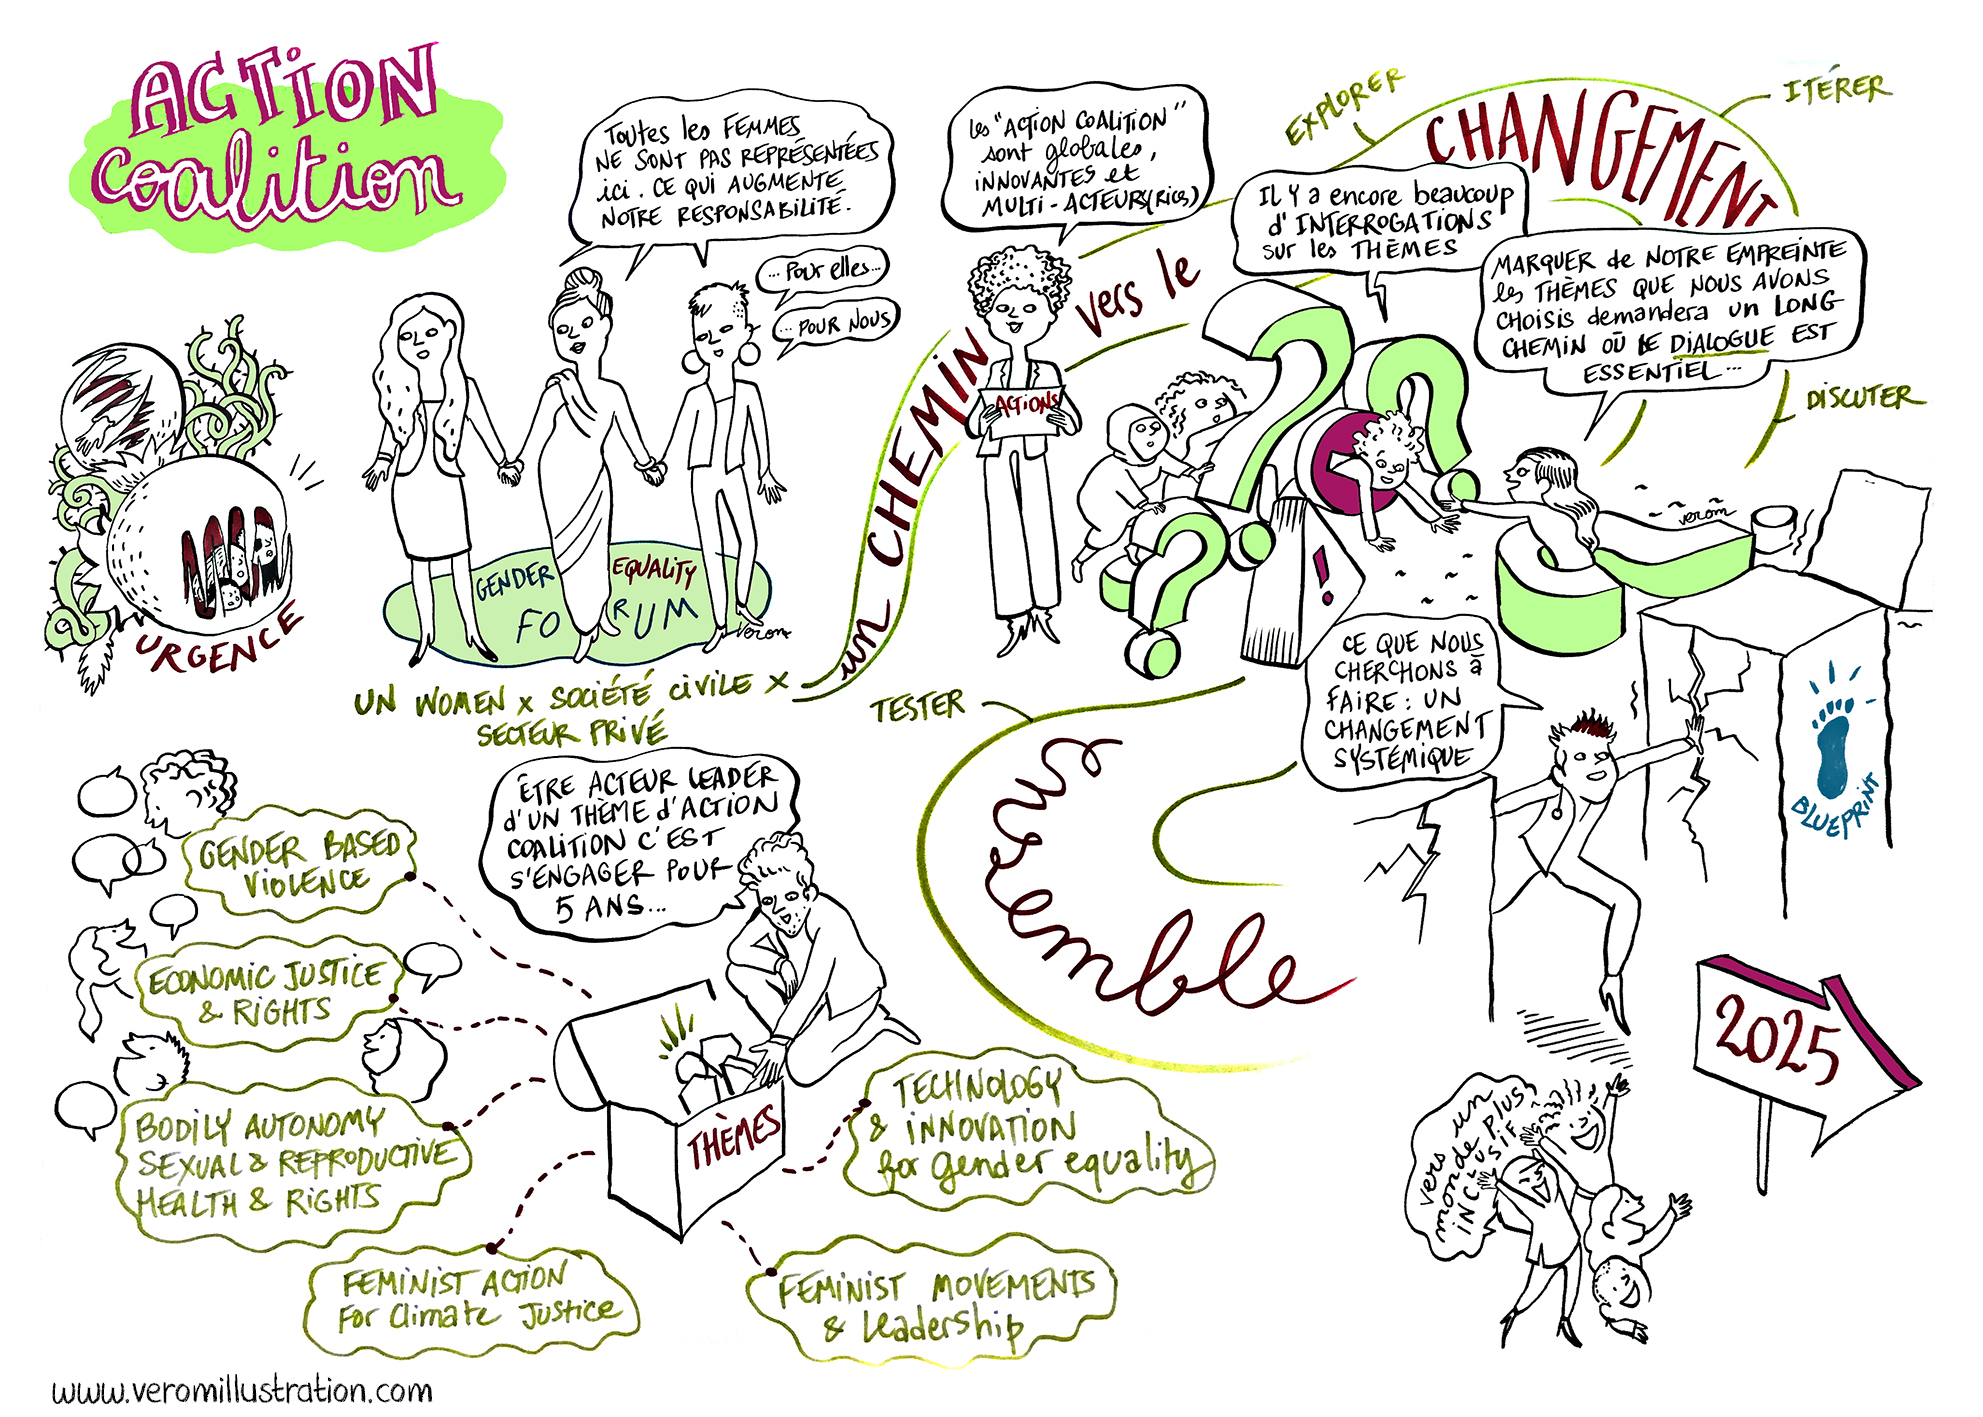 ACTION
coalition
Toutes les FEMMES
NE SONT PAS REPRÉSENTÉES
ici. CE QUI AUGMENTE
NOTRE RESPONSABILITÉ.
... Pour elles...
... POUR NOUS
URGENCE
GENDER EQUALITY
FORUM
verom
UN WOMEN x SOCIÉTÉ CIVILE x
SECTEUR PRIVÉ
les "ACTION COALITION"
sont globales,
INNOVANTES et
MULTI-ACTEURS(RICES)
ACTIONS
un CHEMIN vers le CHANGEMENT
EXPLORER
ITÉRER
DISCUTER
TESTER
Il Y a encore beaucoup
d'INTERROGATIONS
sur les THÈMES
MARQUER de NOTRE EMPREINTE
les THÈMES QUE NOUS AVONS
CHOISIS demandera un LONG
CHEMIN OÙ LE DIALOGUE EST
ESSENTIEL...
verom
!
CE QUE NOUS
CHERCHONS à
FAIRE : UN
CHANGEMENT
SYSTÉMIQUE
BLUEPRINT
ensemble
2025
vers un
monde plus
iNCLUSIF
ÊTRE ACTEUR LEADER
d'UN THÈME d'ACTION
COALITION C'EST
S'ENGAGER POUR
5 ANS...
THÈMES
GENDER BASED
VIOLENCE
ECONOMIC JUSTICE
& RIGHTS
BODILY AUTONOMY
SEXUAL & REPRODUCTIVE
HEALTH & RIGHTS
FEMINIST ACTION
For Climate Justice
FEMINIST MOVEMENTS
& Leadership
TECHNOLOGY
& INNOVATION
for gender equality
www.veromillustration.com